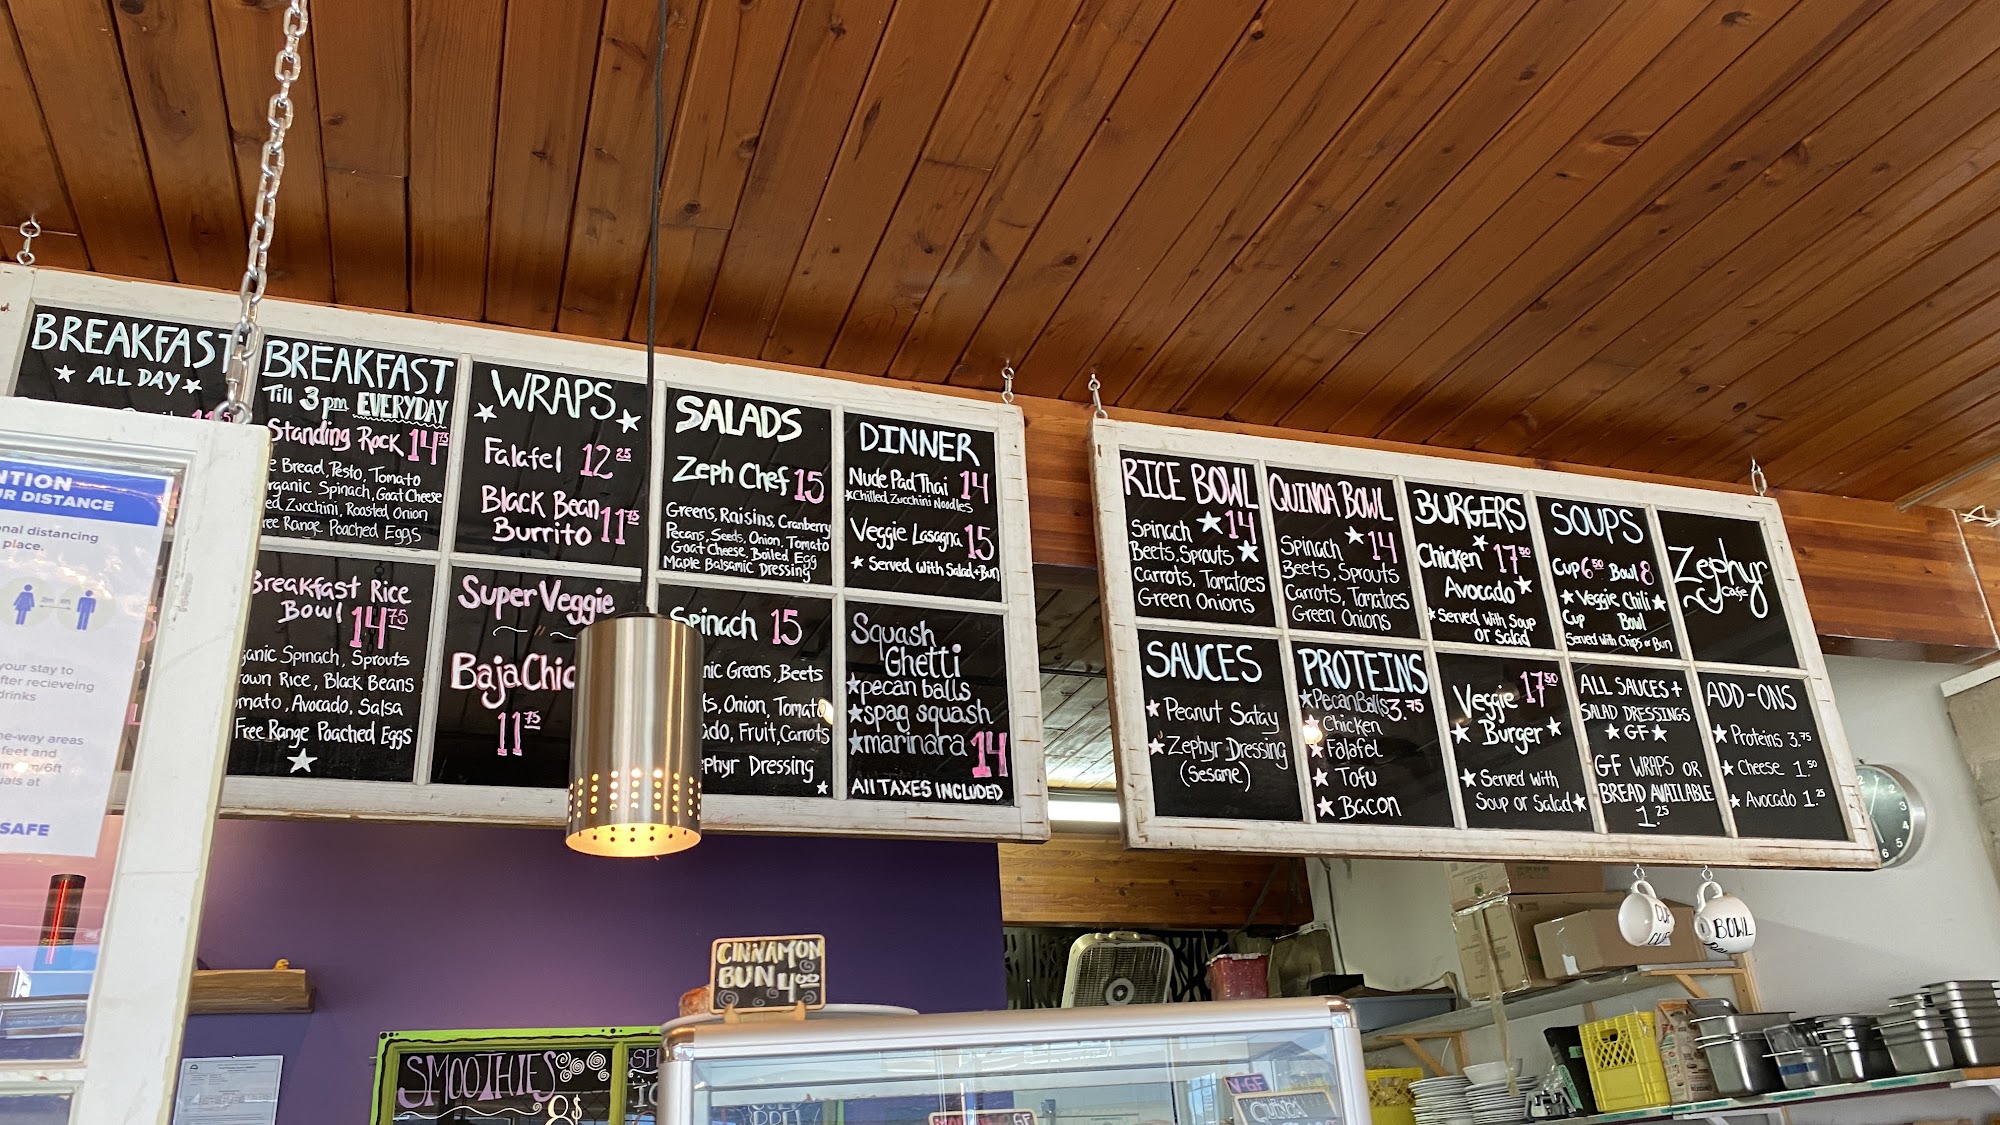 BREAKFAST
★ ALL DAY ★
BREAKFAST
Till 3pm EVERYDAY
Standing Rock 14 75
Bread, Pesto, Tomato
Organic Spinach, Goat Cheese
Zucchini, Roasted Onion
Free Range Poached Eggs
Breakfast Rice
Bowl 14 75
Spinach, Sprouts
Brown Rice, Black Beans
Tomato, Avocado, Salsa
Free Range Poached Eggs
★
WRAPS
★ ★
Falafel 12 25
Black Bean
Burrito 11 75
Super Veggie
Baja
11 75
SALADS
Zeph Chef 15
Greens, Raisins, Cranberry
Pecans, Seeds, Onion, Tomato
Goat Cheese, Boiled Egg
Maple Balsamic Dressing
Spinach 15
Greens, Beets
Onion, Tomato
Fruit, Carrots
Zephyr Dressing
★
DINNER
Nude Pad Thai 14
★Chilled Zucchini Noodles
Veggie Lasagna 15
★ Served with Salad+Bun
Squash
Ghetti
★pecan balls
★spag squash
★marinara 14
All TAXES INCLUDED
RICE BOWL
Spinach ★14
Beets, Sprouts ★
Carrots, Tomatoes
Green Onions
QUINOA BOWL
★
Spinach 14
Beets, Sprouts
Carrots, Tomatoes
Green Onions
BURGERS
★
Chicken 17 50
Avocado ★
★Served with Soup
or Salad
SOUPS
Cup 6 50 Bowl 8
★ Veggie Chili ★
Cup Bowl
Served with Chips or Bun
Zephyr
Cafe
SAUCES
★ Peanut Satay
★ Zephyr Dressing
(Sesame)
PROTEINS
★Pecan Balls 3.75
★ Chicken
★ Falafel
★ Tofu
★ Bacon
Veggie 17 50
★ Burger ★
★ Served with
Soup or Salad★
ALL SAUCES +
SALAD DRESSINGS
★ GF ★
GF WRAPS OR
BREAD AVAILABLE
1.25
ADD-ONS
★ Proteins 3.75
★ Cheese 1.50
★ Avocado 1.25
DISTANCE
distancing
place.
your stay to
after recieveing
drinks
areas
feet and
m/6ft
at
SAFE
CINNAMON
BUN 4.00
BOWL
SMOOTHIES
8$